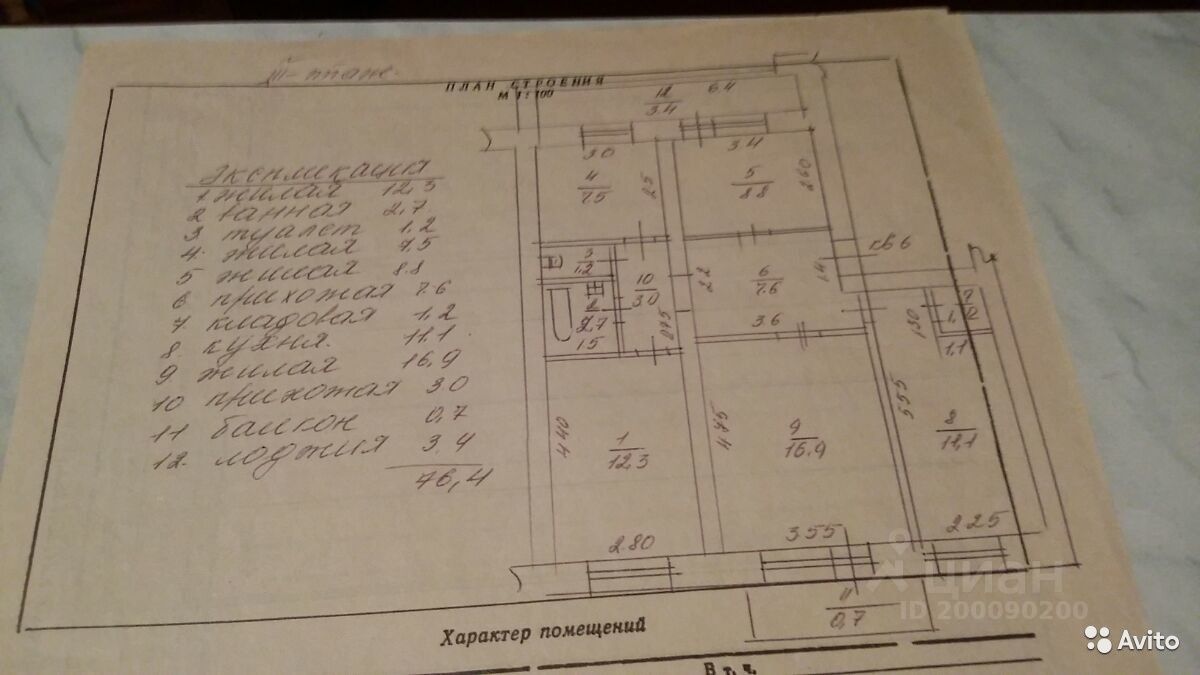 III - этаже.
ПЛАН СТРОЕНИЯ
М 1:100
Экспликация
1 жилая 12,3
2 ванная 2,7
3 туалет 1,2
4. жилая 7,5
5 жилая 8.8
6 прихожая 7.6
7 кладовая 1,2
8. кухня. 11,1
9 жилая 16,9
10 прихожая 3.0
11 балкон 0,7
12. лоджия 3,4
76,4
12
3.4
6.4
3.0
3.4
4
7.5
25
5
8.8
260
3
1,2
10
3.0
22
6
7.6
1.4
кв 6
2
2,7
1.5
075
3.6
130
7
1,2
1,1
440
1
12,3
475
9
16.9
555
8
11,1
2.80
3.55
2.25
11
0,7
Характер помещений
В т. ч.
циан
ID 200090200
Avito